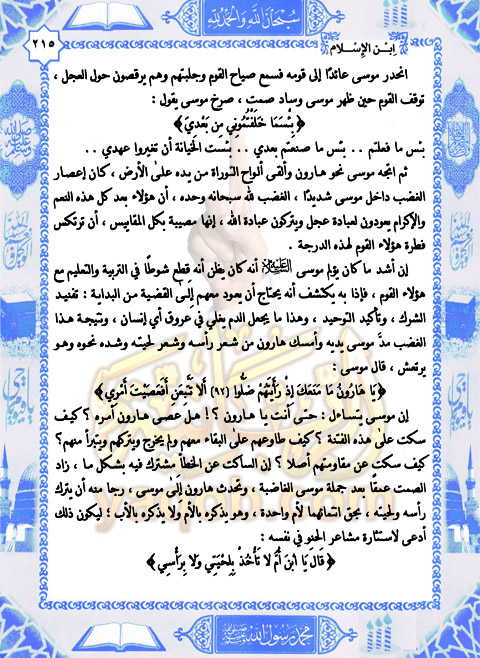 سبحان الله والحمد لله
٢١٥
ابن الإسلام
انحدر موسى عائدًا إلى قومه فسمع صياح القوم وجلبتهم وهم يرقصون حول العجل ،
توقف القوم حين ظهر موسى وساد صمت ، صرخ موسى يقول :
﴿بِئْسَمَا خَلَفْتُمُونِي مِن بَعْدِيَ﴾
بئس ما فعلتم .. بئس ما صنعتم بعدي .. بئست الخيانة أن تغيروا عهدي ..
ثم اتجه موسى نحو هارون وألقى ألواح التوراة من يده على الأرض ، كان إعصار
الغضب داخل موسى شديدًا ، الغضب لله سبحانه وحده ، إن هؤلاء بعد كل هذه النعم
والإكرام يعودون لعبادة عجل ويتركون عبادة الله ، إنها مصيبة بكل المقاييس ، أن ترتكس
فطرة هؤلاء القوم لهذه الدرجة .
إن أشد ما كان يؤلم موسى عليه السلام أنه كان يظن أنه قطع شوطًا في التربية والتعليم مع
هؤلاء القوم ، فإذا به يكتشف أنه يحتاج أن يعود معهم إلى القضية من البداية : تفنيد
الشرك ، وتأكيد التوحيد ، وهذا ما يجعل الدم يغلي في عروق أي إنسان ، ونتيجة هذا
الغضب مدّ موسى يديه وأمسك هارون من شعر رأسه وشعر لحيته وشده نحوه وهو
يرتعش ، قال موسى :
﴿يَا هَارُونُ مَا مَنَعَكَ إِذْ رَأَيْتَهُمْ ضَلُّوا (٩٢) أَلَّا تَتَّبِعَنِ أَفَعَصَيْتَ أَمْرِي﴾
إن موسى يتساءل : حتى أنت يا هارون ؟! هل عصى هارون أمره ؟ كيف
سكت على هذه الفتنة ؟ كيف طاوعهم على البقاء معهم ولم يخرج ويتركهم ويتبرأ منهم؟
كيف سكت عن مقاومتهم أصلا ؟ إن الساكت عن الخطأ مشترك فيه بشكل ما ، زاد
الصمت عمقًا بعد جملة موسى الغاضبة ، وتحدث هارون إلى موسى ، رجا منه أن يترك
رأسه ولحيته ، بحق انتمائهما لأم واحدة ، وهو يذكره بالأم ولا يذكره بالأب ؛ ليكون ذلك
أدعى لاستثارة مشاعر الحنو في نفسه :
﴿قَالَ يَا ابْنَ أُمَّ لَا تَأْخُذْ بِلِحْيَتِي وَلَا بِرَأْسِي﴾
محمد رسول الله